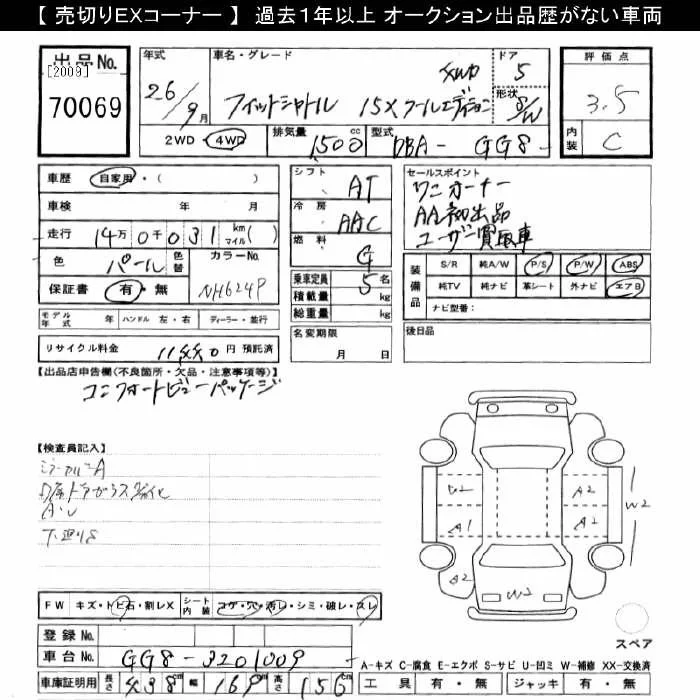 【 売切りEXコーナー 】 過去1年以上 オークション出品歴がない車両
出品No.
[2009]
70069
年式
26/9月
車名・グレード
フィットシャトル 15X クールエディション 4WD
ドア
5
形状
S/W
評価点
3.5
内装
C
2WD・4WD
排気量
1500cc
型式
DBA- GG8-
車歴 自家用・( )
車検 年 月
走行 14万0千031 km マイル( )
色 パール 色替
カラーNo.
NH624P
保証書 有・無
モデル年式 年 ハンドル 左・右 ディーラー・並行
リサイクル料金 11440円 預託済
シフト AT
冷房 AAC
燃料 G
乗車定員 5名
積載量 kg
総重量 kg
名変期限
月 日
セールスポイント
ワンオーナー
AA初出品
ユーザー買取車
装備品
S/R 純A/W P/S P/W ABS
純TV 純ナビ 革シート 外ナビ エアB
ナビ型番:
後日品
【出品店申告欄(不良箇所・欠品・注意事項等)】
コンフォートビューパッケージ
【検査員記入】
A・U
下廻りS
A2
A2
A1
A2
A2
W2
W2
FW キズ・トビ石・割レX
シート内装 コゲ・穴・汚レ・シミ・破レ・スレ
スペア
登録No.
車台No. GG8-3201009
車庫証明用 長さ 438cm 幅 169cm 高さ 156cm
A-キズ C-腐食 E-エクボ S-サビ U-凹ミ W-補修 XX-交換済
工具 有・無 ジャッキ 有・無